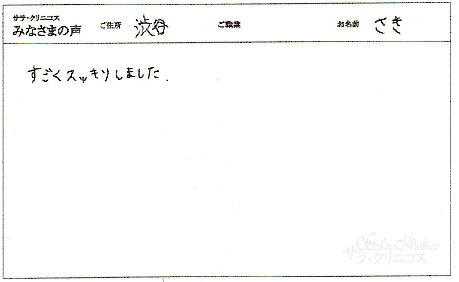 サラ・クリニコス
みなさまの声 ご住所 渋谷 ご職業 お名前 さき
すごくスッキリしました.
サラ・クリニコス